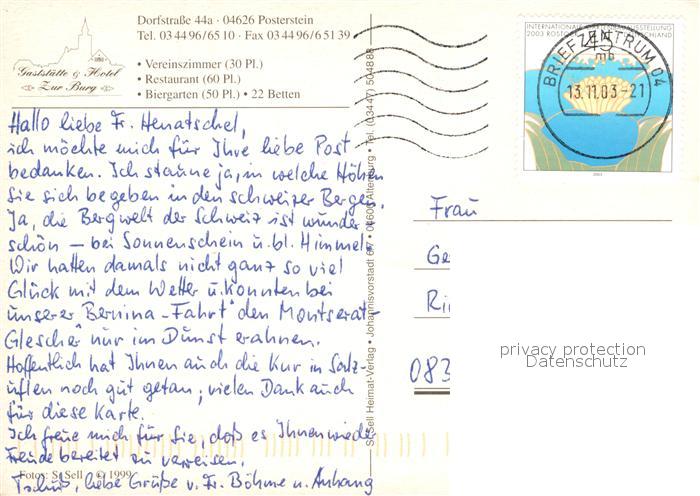 Dorfstraße 44a · 04626 Posterstein
Tel. 03 44 96/65 10 · Fax 03 44 96/6 51 39
Gaststätte & Hotel
Zur Burg
• Vereinszimmer (30 Pl.)
• Restaurant (60 Pl.)
• Biergarten (50 Pl.) • 22 Betten
Hallo liebe Fr. Henatschel,
ich möchte mich für Ihre liebe Post
bedanken. Ich staune ja, in welche Höhen
Sie sich begeben in den schweizer Bergen.
Ja, die Bergwelt der Schweiz ist wunder-
schön – bei Sonnenschein u. bl. Himmel.
Wir hatten damals nicht ganz so viel
Glück mit dem Wetter u. konnten bei
unserer "Bernina-Fahrt" den Montserat-
Glescher nur im Dunst erahnen.
Hoffentlich hat Ihnen auch die Kur in Salz-
uflen noch gut getan; vielen Dank auch
für diese Karte.
Ich freue mich für Sie, daß es Ihnen wieder
Freude bereitet zu verreisen.
Tschüß, liebe Grüße v. Fr. Böhme u. Anhang
Fotos: St. Sell © 1999
St. Sell Heimat-Verlag • Johannisvorstadt 6/7 • 04600 Altenburg • Tel. (03447) 504888
INTERNATIONALE GARTENBAUAUSSTELLUNG
2003 ROSTOCK DEUTSCHLAND
45
BRIEFZENTRUM 04
mb
13.11.03-21
2003
Frau
Ge
Ri
083
privacy protection
Datenschutz